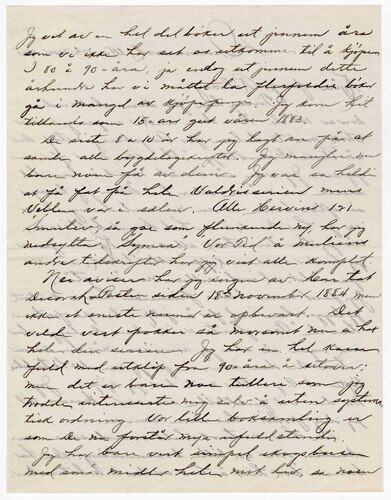 Jeg vet av en hel del bøker ut jennem åra
som vi ikke har set os utkomme til å kjøpe
I 80 å 90-åra, ja endog ut jennem dette
århundre har vi måttet la flerfoldie bøker
gå i mangel av kjøpepenger. Jeg kom hit
tillands som 15-års gut våren 1883.
De siste 8 a 10 år har jeg lagt an på at
samle alle bygdelagsskrifter. Jeg mangler nu
bare noen få av dem. Jeg var så heldi
at få fat på hele Valdrisserien mens
Veblen var i salen. Alle Hervins 121
Smuler, så gae som flunkende ny, har jeg
nedsylter. Symra. Vor Tid å mutiens
andre tidsskrifter har jeg vist alle komplet.
Nei aviser har jeg ingen av. Har tat
Decorah-Posten siden 18de November 1884 men
ikke et eneste numer er opbevart. Det
vild vert pokker så morsomt nu a hat
hele den serien. Jeg har en hel kasse
fuld med utklip fra 90-åra å utover;
men det er bare noe tilleri som jeg
trodde interesserte mig selv å uten systema-
tisk ordning. Vor lille boksamling er
som De nu forstår mye ufuldstendi.
Jeg har bare vert simpel skogsbas
med små midler hele mit liv, så noen